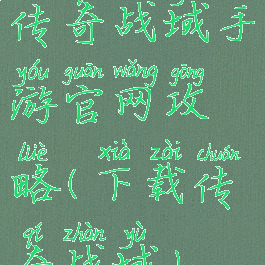 传奇战域手
yóu guān wǎng gōng
游官网攻
lüè xià zài chuán
略(下载传
qí zhàn yù
奇战域)